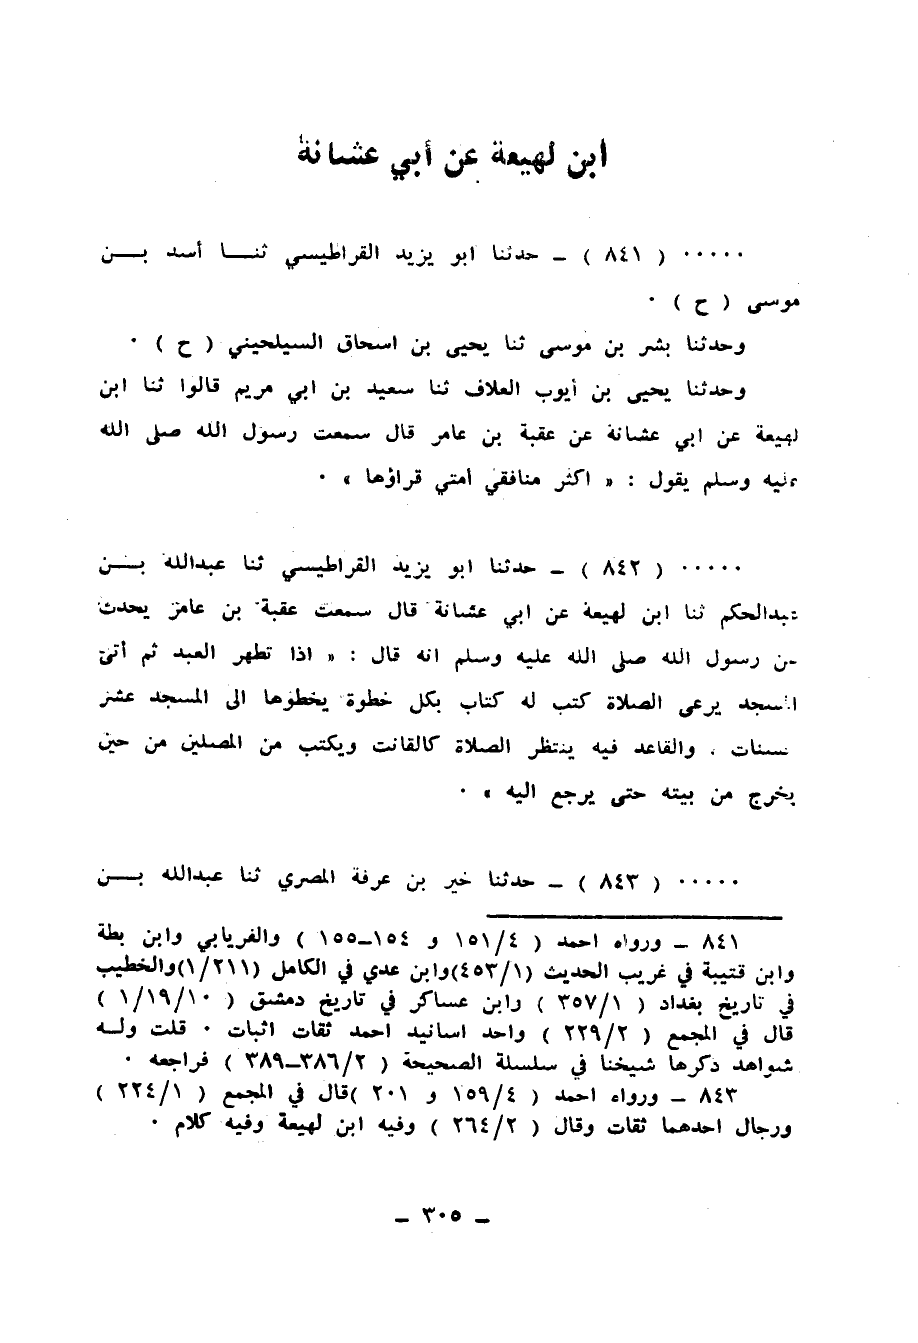 ابن لهيعة عن أبي عشانة
۰۰۰۰۰ ( ٨٤١ ) ـ حدثنا ابو يزيد القراطيسي ثنـــا أسد بـــن
موسى ( ح ) ۰
وحدثنا بشر بن موسى ثنا يحيى بن اسحاق السيلحيني ( ح ) ۰
وحدثنا يحيى بن أيوب العلاف ثنا سعيد بن ابي مريم قالوا ثنا ابن
لهيعة عن ابي عشانة عن عقبة بن عامر قال سمعت رسول الله صلى الله
عليه وسلم يقول : « اكثر منافقي أمتي قراؤها » ۰
۰۰۰۰۰ ( ٨٤٢ ) ـ حدثنا ابو يزيد القراطيسي ثنا عبدالله بـــن
عبدالحكم ثنا ابن لهيعة عن ابي عشانة قال سمعت عقبة بن عامر يحدث
عن رسول الله صلى الله عليه وسلم انه قال : « اذا تطهر العبد ثم أتى
المسجد يرعى الصلاة كتب له كتاب بكل خطوة يخطوها الى المسجد عشر
حسنات ، والقاعد فيه ينتظر الصلاة كالقانت ويكتب من المصلين من حين
يخرج من بيته حتى يرجع اليه » ۰
۰۰۰۰۰ ( ٨٤٣ ) ـ حدثنا خير بن عرفة المصري ثنا عبدالله بـــن
٨٤١ ـ ورواه احمد ( ١٥١/٤ و ١٥٤ـ١٥٥ ) والفريابي وابن بطة
وابن قتيبة في غريب الحديث (٤٥٣/١)وابن عدي في الكامل (١/٢١١)والخطيب
في تاريخ بغداد ( ٣٥٧/١ ) وابن عساكر في تاريخ دمشق ( ١/١٩/١٠ )
قال في المجمع ( ٢٢٩/٢ ) واحد اسانيد احمد ثقات اثبات ۰ قلت ولــه
شواهد ذكرها شيخنا في سلسلة الصحيحة ( ٣٨٦/٢ـ٣٨٩ ) فراجعه ۰
٨٤٣ ـ ورواه احمد ( ١٥٩/٤ و ٢٠١ )قال في المجمع ( ٢٢٤/١ )
ورجال احدهما ثقات وقال ( ٢٦٤/٢ ) وفيه ابن لهيعة وفيه كلام ۰
ـ ٣٠٥ ـ